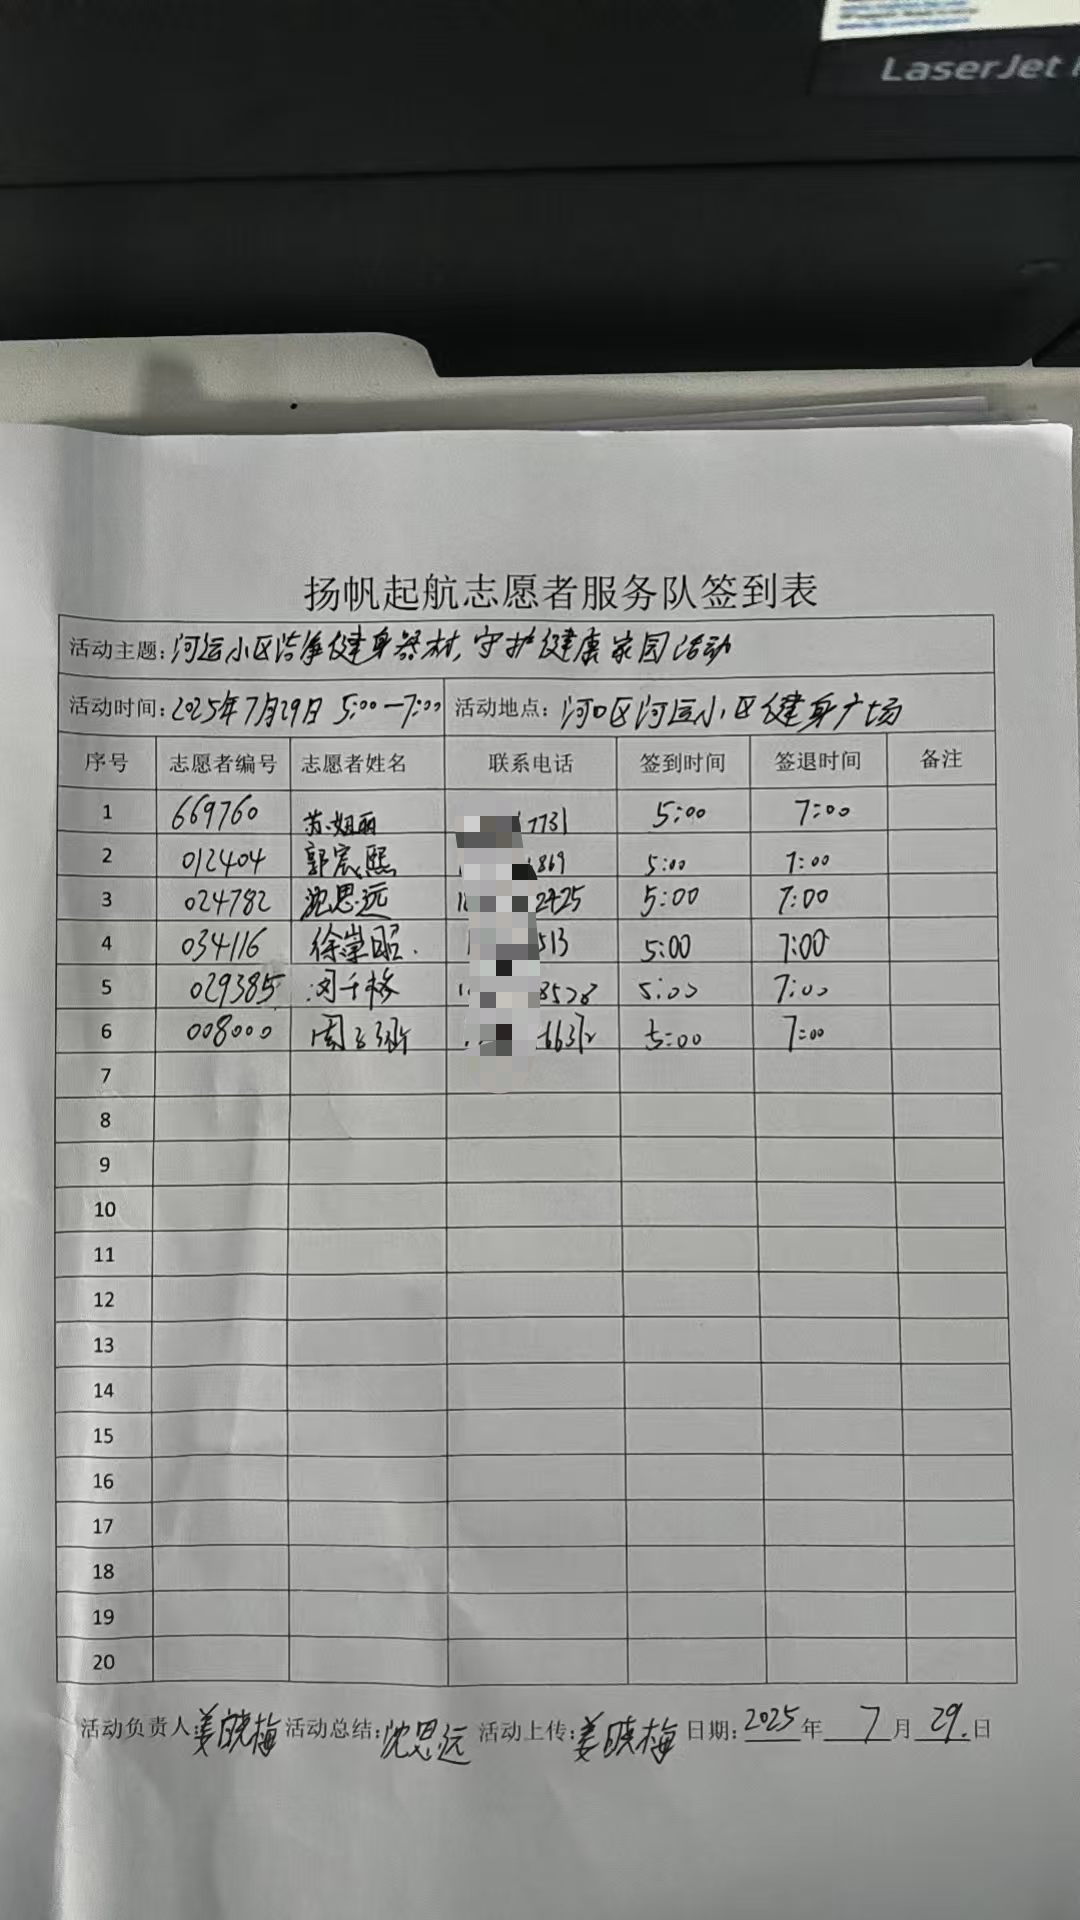 LaserJet
扬帆起航志愿者服务队签到表
活动主题:河运小区洁净健身器材,守护健康家园活动
活动时间:2025年7月29日 5:00—7:00 活动地点:河口区河运小区健身广场
序号 志愿者编号 志愿者姓名 联系电话 签到时间 签退时间 备注
1 669760 苏姐丽 7731 5:00 7:00
2 012404 郭宸熙 869 5:00 7:00
3 024782 沈思远 2425 5:00 7:00
4 034116 徐崇昭 513 5:00 7:00
5 029385 8528 5:00 7:00
6 008000 6632 5:00 7:00
7
8
9
10
11
12
13
14
15
16
17
18
19
20
活动负责人:姜晓梅 活动总结:沈思远 活动上传:姜晓梅 日期:2025年7月29.日